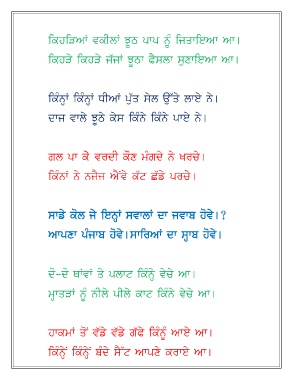 ਕਿਹੜਿਆਂ ਵਕੀਲਾਂ ਝੂਠ ਪਾਪ ਨੂੰ ਜਿਤਾਇਆ ਆ।
ਕਿਹੜੇ ਕਿਹੜੇ ਜੱਜਾਂ ਝੂਠਾ ਫੈਸਲਾ ਸੁਣਾਇਆ ਆ।
ਕਿੰਨ੍ਹਾਂ ਕਿੰਨ੍ਹਾਂ ਧੀਆਂ ਪੁੱਤ ਸੇਲ ਉੱਤੇ ਲਾਏ ਨੇ।
ਦਾਜ ਵਾਲੇ ਝੂਠੇ ਕੇਸ ਕਿੰਨੇ ਕਿੰਨੇ ਪਾਏ ਨੇ।
ਗਲ ਪਾ ਕੇ ਵਰਦੀ ਕੌਣ ਮੰਗਦੇ ਨੇ ਖਰਚੇ।
ਕਿੰਨਾਂ ਨੇ ਨਜੈਜ ਐਂਵੇ ਕੱਟ ਛੱਡੇ ਪਰਚੇ।
ਸਾਡੇ ਕੋਲ ਜੇ ਇਨ੍ਹਾਂ ਸਵਾਲਾਂ ਦਾ ਜਵਾਬ ਹੋਵੇ।?
ਆਪਣਾ ਪੰਜਾਬ ਹੋਵੇ।ਸਾਰਿਆਂ ਦਾ ਸ੍ਹਾਬ ਹੋਵੇ।
ਦੋ-ਦੋ ਥਾਂਵਾਂ ਤੇ ਪਲਾਟ ਕਿੰਨ੍ਹੇ ਵੇਚੇ ਆ।
ਮ੍ਹਾਤੜਾਂ ਨੂੰ ਨੀਲੇ ਪੀਲੇ ਕਾਟ ਕਿੰਨੇ ਵੇਚੇ ਆ।
ਹਾਕਮਾਂ ਤੋਂ ਵੱਡੇ ਵੱਡੇ ਗੱਫੇ ਕਿੰਨੂੰ ਆਏ ਆ।
ਕਿੰਨ੍ਹੇਂ ਕਿੰਨ੍ਹੇਂ ਬੰਦੇ ਸੈੱਟ ਆਪਣੇ ਕਰਾਏ ਆ।